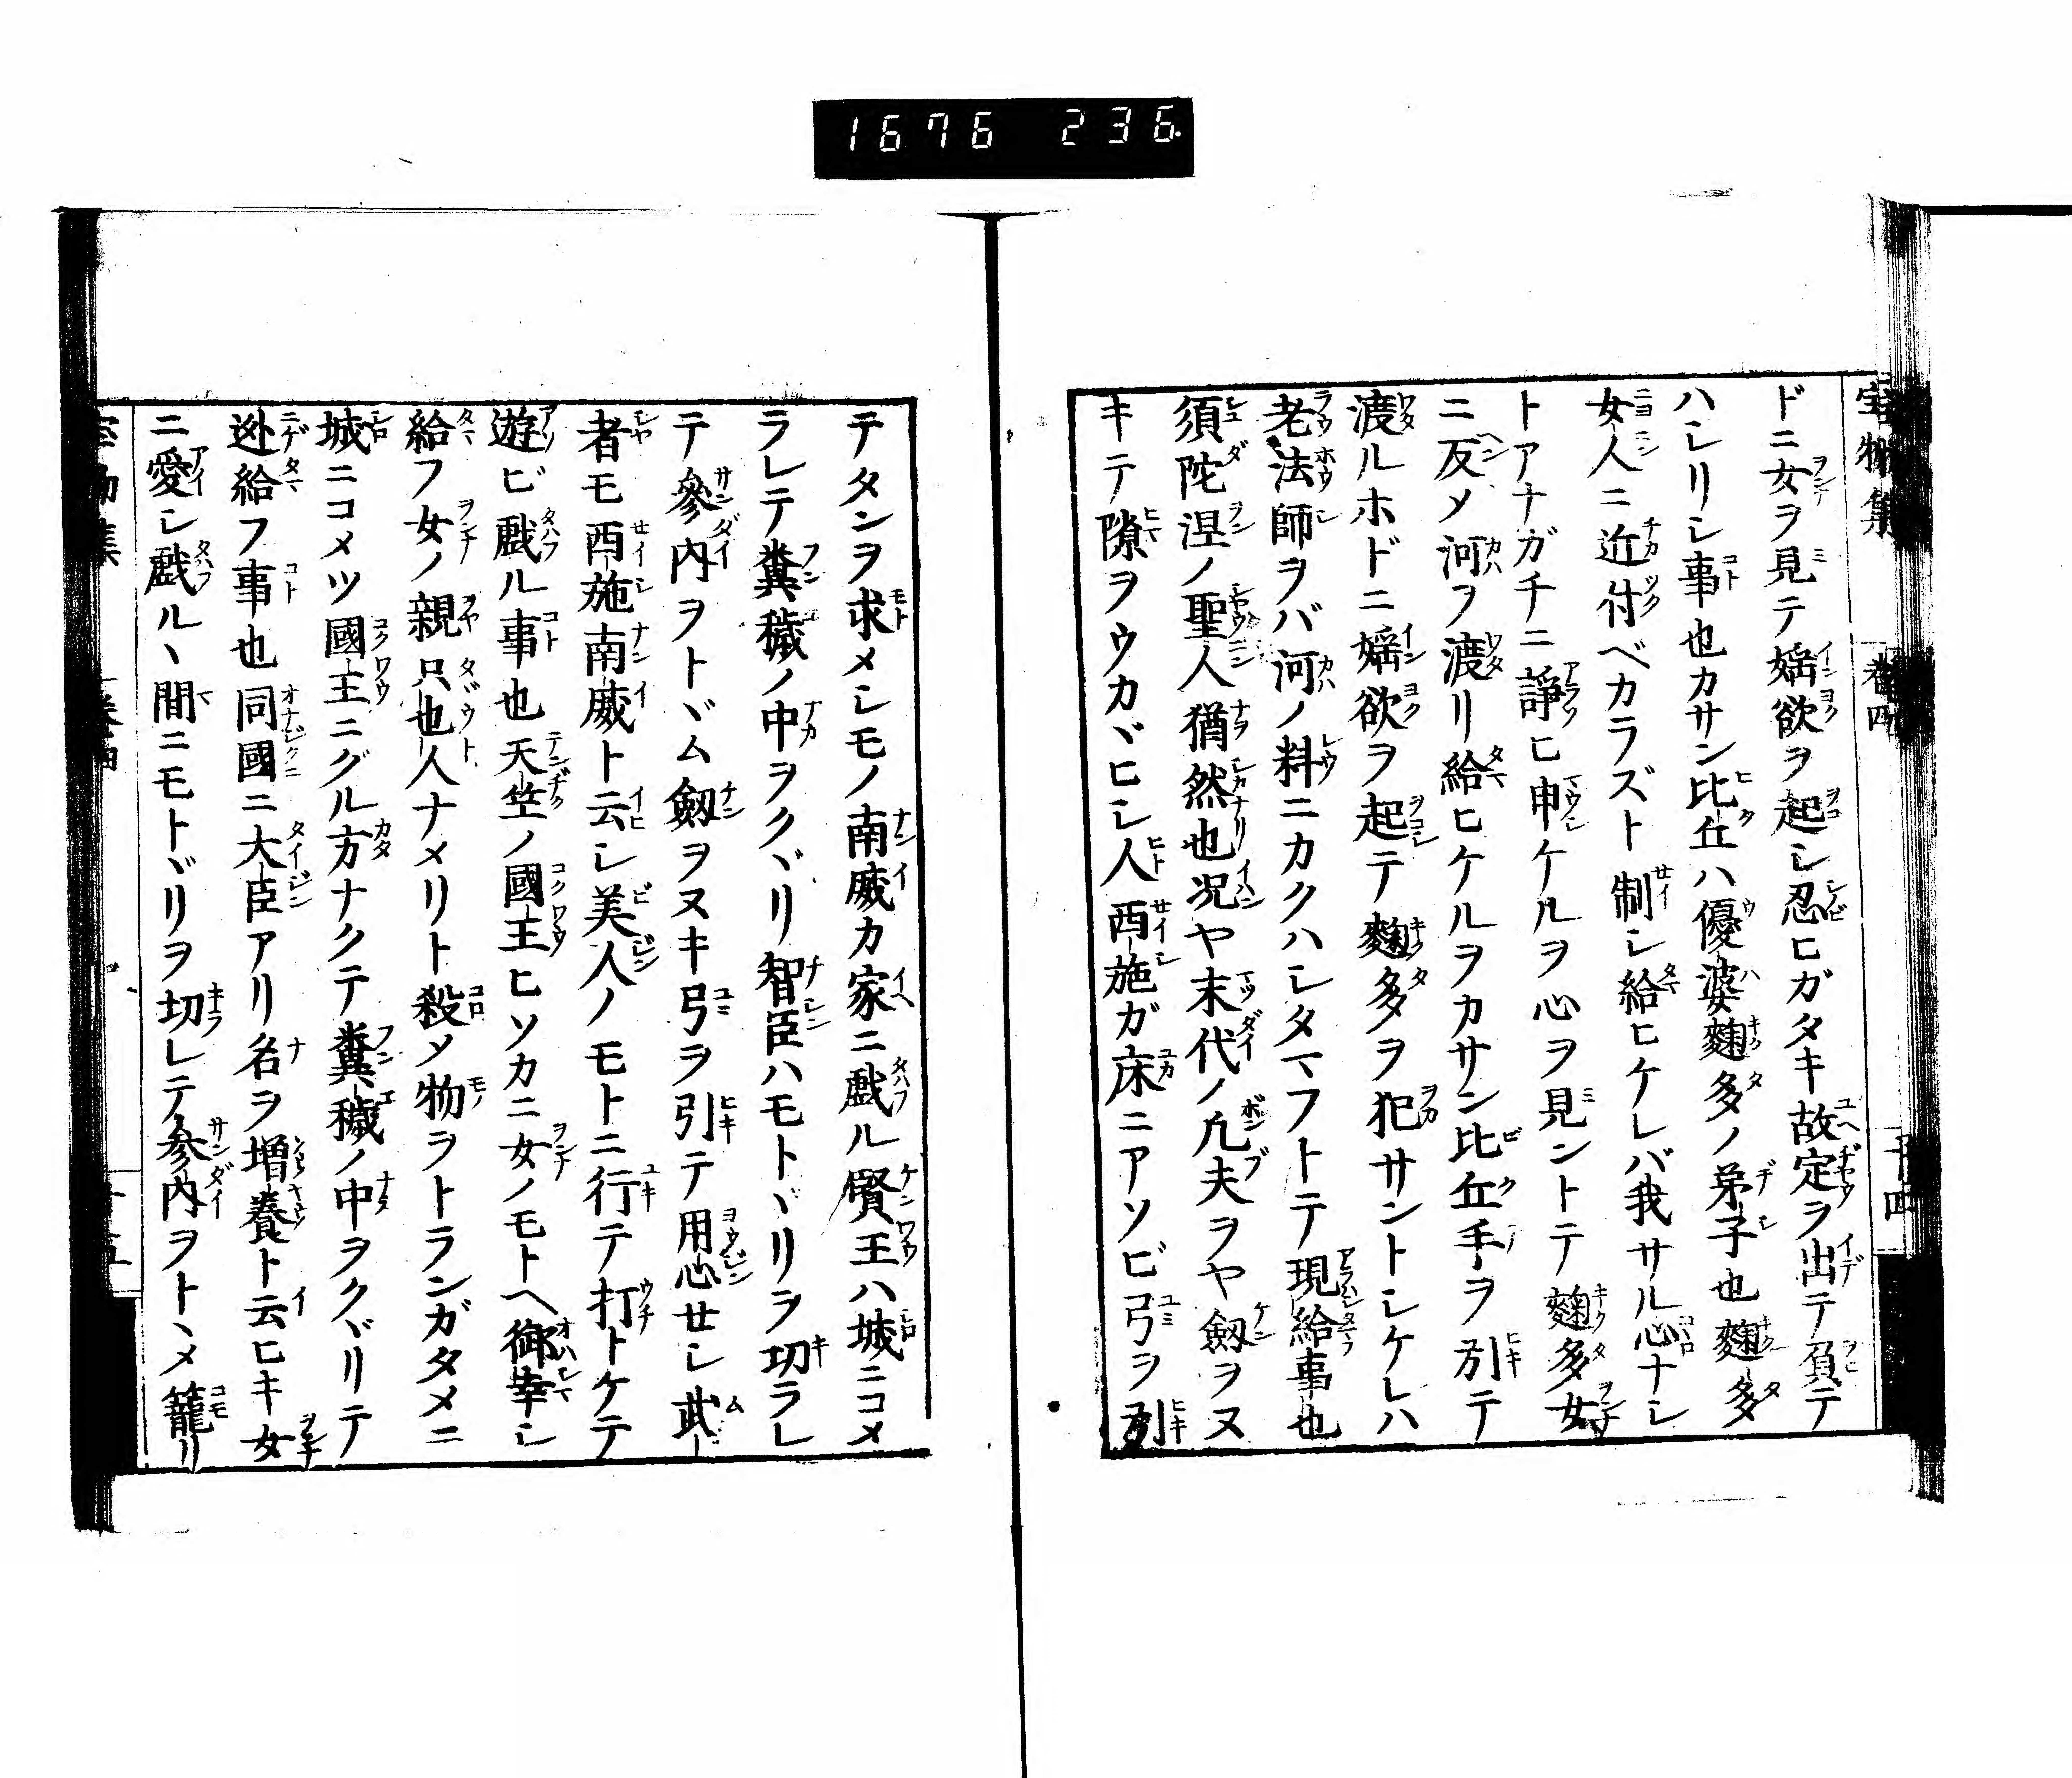 1676 236
宝物集 巻四 十四
ドニ女ヲ見テ婬欲ヲ起シ忍ヒガタキ故定ヲ出テ負テ
ハシリシ事也カサン比丘ハ優婆麹多ノ弟子也麹多
女人ニ近付ベカラズト制シ給ヒケレバ我サル心ナシ
トアナガチニ諍ヒ申ケルヲ心ヲ見ントテ麹多女
ニ反メ河ヲ渡リ給ヒケルヲカサン比丘手ヲ引テ
渡ルホドニ婬欲ヲ起テ麹多ヲ犯サントシケレハ
老法師ヲバ河ノ料ニカクハシタマフトテ現給事也
須陀洹ノ聖人猶然也况ヤ末代ノ凡夫ヲヤ劔ヲヌ
キテ隙ヲウカヾヒシ人西施ガ床ニアソビ弓ヲ引
テタンヲ求メシモノ南威カ家ニ戯ル賢王ハ城ニコメ
ラレテ糞穢ノ中ヲクヾリ智臣ハモトヾリヲ切ラレ
テ參内ヲトヾム劔ヲヌキ弓ヲ引テ用心せシ武
者モ西施南威ト云シ美人ノモトニ行テ打トケテ
遊ビ戯ル事也天竺ノ國王ヒソカニ女ノモトヘ御幸シ
給フ女ノ親只也人ナメリト殺ソ物ヲトランガタメニ
城ニコメツ國王ニグル方ナクテ糞穢ノ中ヲクヾリテ
迯給フ事也同國ニ大臣アリ名ヲ増養ト云ヒキ女
ニ愛シ戯ルヽ間ニモトヾリヲ切レテ参内ヲトヽメ籠リ
宝物集 巻四 十五